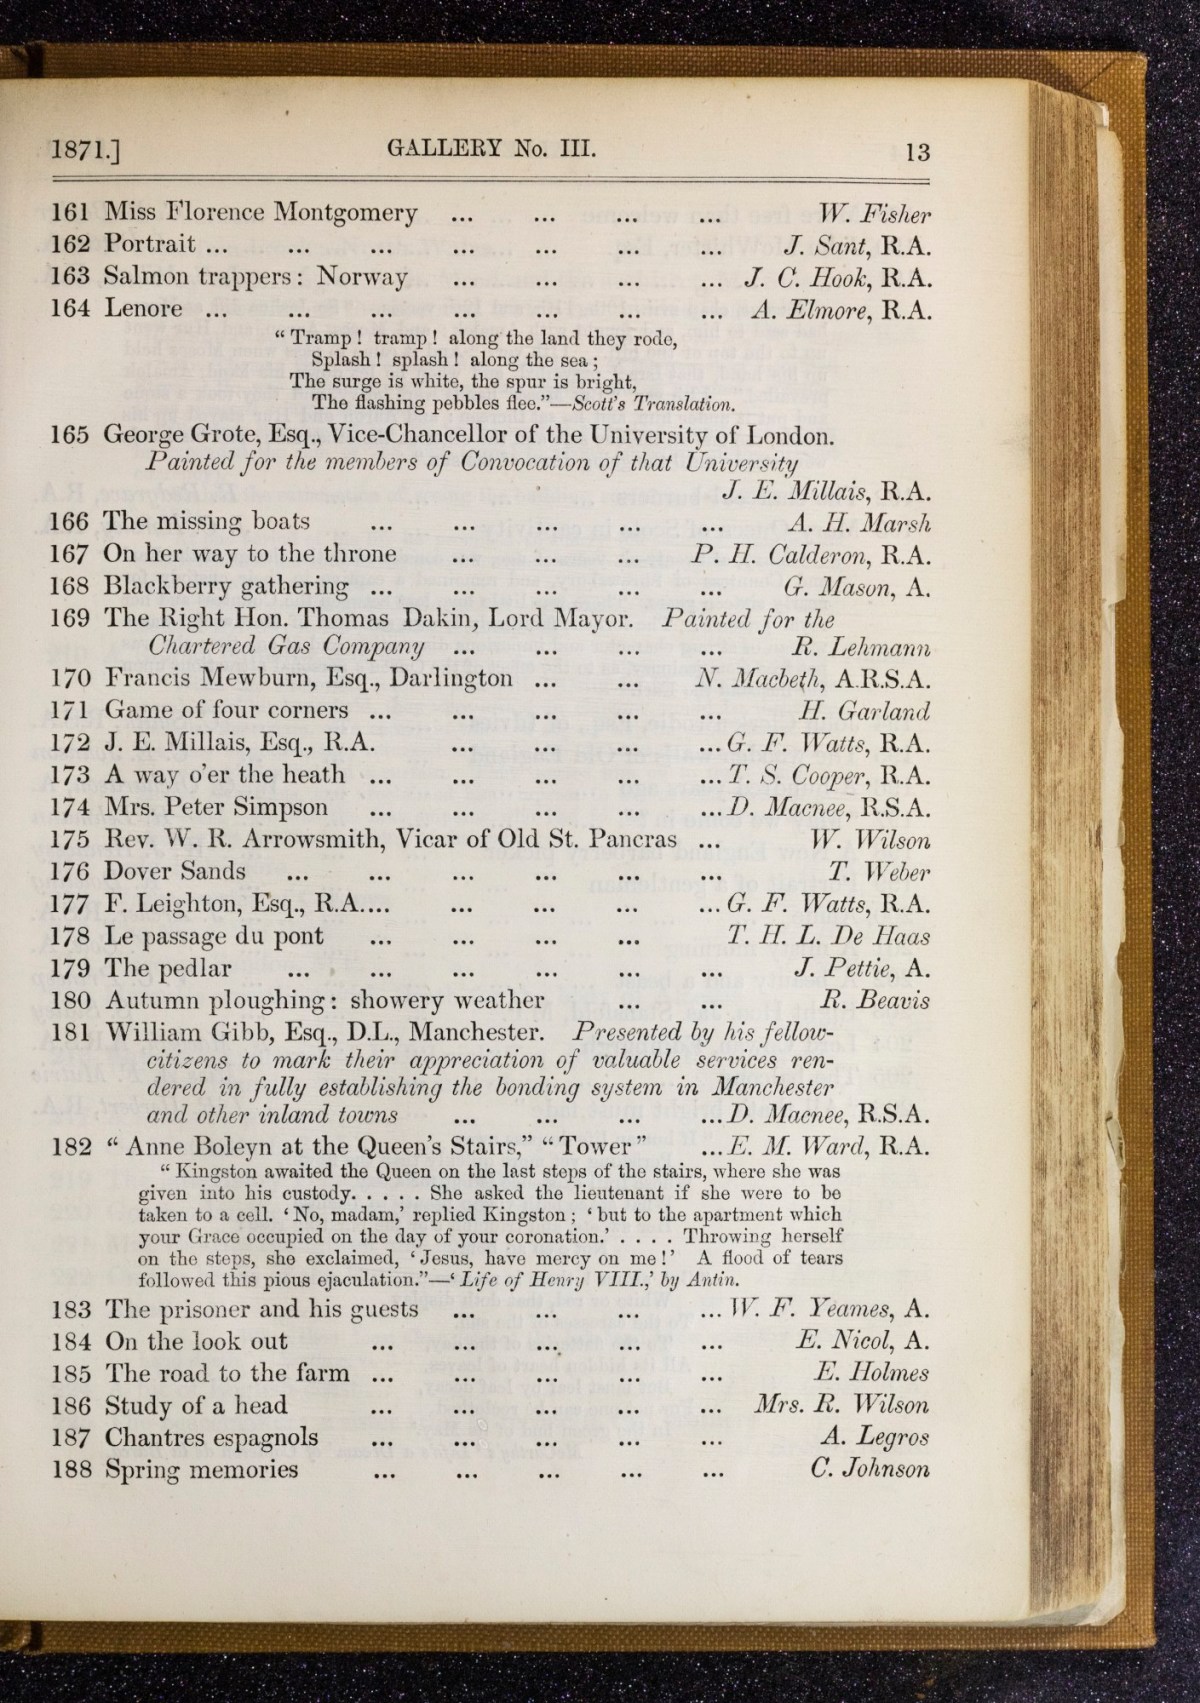 1871.] GALLERY No. III. 13
161 Miss Florence Montgomery ... ... ... ... W. Fisher
162 Portrait ... ... ... ... ... ... ... J. Sant, R.A.
163 Salmon trappers: Norway ... ... ... ... J. C. Hook, R.A.
164 Lenore ... ... ... ... ... ... ... A. Elmore, R.A.
“ Tramp ! tramp ! along the land they rode,
Splash ! splash ! along the sea ;
The surge is white, the spur is bright,
The flashing pebbles flee.”—Scott's Translation.
165 George Grote, Esq., Vice-Chancellor of the University of London.
Painted for the members of Convocation of that University
J. E. Millais, R.A.
166 The missing boats ... ... ... ... ... A. H. Marsh
167 On her way to the throne ... ... ... P. H. Calderon, R.A.
168 Blackberry gathering ... ... ... ... ... G. Mason, A.
169 The Right Hon. Thomas Dakin, Lord Mayor. Painted for the
Chartered Gas Company ... ... ... ... R. Lehmann
170 Francis Mewburn, Esq., Darlington ... ... N. Macbeth, A.R.S.A.
171 Game of four corners ... ... ... ... ... H. Garland
172 J. E. Millais, Esq., R.A. ... ... ... ... G. F. Watts, R.A.
173 A way o'er the heath ... ... ... ... ... T. S. Cooper, R.A.
174 Mrs. Peter Simpson ... ... ... ... ... D. Macnee, R.S.A.
175 Rev. W. R. Arrowsmith, Vicar of Old St. Pancras ... W. Wilson
176 Dover Sands ... ... ... ... ... ... T. Weber
177 F. Leighton, Esq., R.A.... ... ... ... ... G. F. Watts, R.A.
178 Le passage du pont ... ... ... ... T. H. L. De Haas
179 The pedlar ... ... ... ... ... ... J. Pettie, A.
180 Autumn ploughing: showery weather ... ... R. Beavis
181 William Gibb, Esq., D.L., Manchester. Presented by his fellow-
citizens to mark their appreciation of valuable services ren-
dered in fully establishing the bonding system in Manchester
and other inland towns ... ... ... ... D. Macnee, R.S.A.
182 “ Anne Boleyn at the Queen's Stairs,” “ Tower ” ... E. M. Ward, R.A.
“ Kingston awaited the Queen on the last steps of the stairs, where she was
given into his custody. . . . . She asked the lieutenant if she were to be
taken to a cell. ‘ No, madam,’ replied Kingston ; ‘ but to the apartment which
your Grace occupied on the day of your coronation.’ . . . . Throwing herself
on the steps, she exclaimed, ‘ Jesus, have mercy on me !’ A flood of tears
followed this pious ejaculation.”—‘ Life of Henry VIII.,’ by Antin.
183 The prisoner and his guests ... ... ... ... W. F. Yeames, A.
184 On the look out ... ... ... ... ... E. Nicol, A.
185 The road to the farm ... ... ... ... ... E. Holmes
186 Study of a head ... ... ... ... ... Mrs. R. Wilson
187 Chantres espagnols ... ... ... ... ... A. Legros
188 Spring memories ... ... ... ... ... C. Johnson